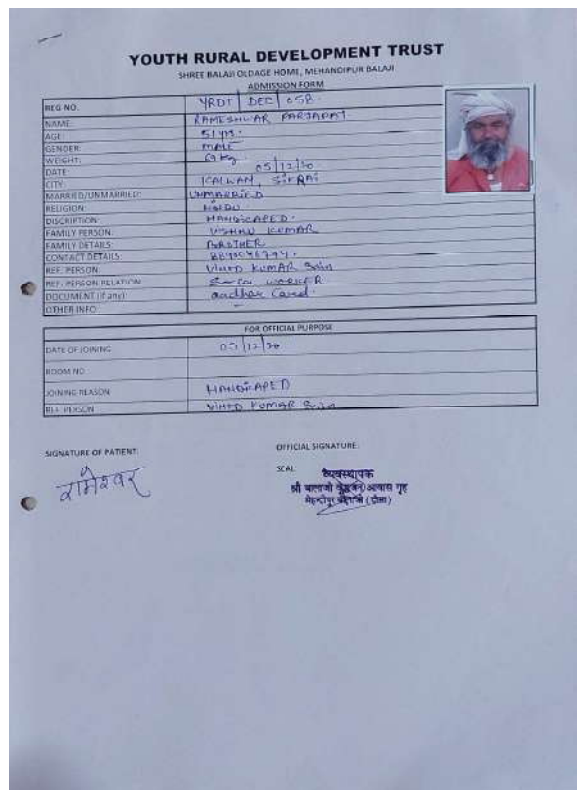 YOUTH RURAL DEVELOPMENT TRUST
SHREE BALAJI OLDAGE HOME, MEHANDIPUR BALAJI
ADMISSION FORM
REG NO. YRDT DEC 058.
NAME: RAMESHWAR PARJAPAT
AGE: 51 yrs.
GENDER: MALE
WEIGHT: 69 kg
DATE: 05/12/20
CITY: KALWAN, SIKRAI
MARRIED/UNMARRIED: UNMARRIED
RELIGION: HINDU
DISCRIPTION: HANDICAPED.
FAMILY PERSON: VISHNU KUMAR
FAMILY DETAILS: BROTHER
CONTACT DETAILS:
REF. PERSON: VINOD KUMAR Sain
REF. PERSON RELATION: WORKER
DOCUMENT (if any): aadhar Card.
OTHER INFO: -
FOR OFFICIAL PURPOSE
DATE OF JOINING 05/12/20
ROOM NO.
JOINING REASON HANDICAPED
REF. PERSON VINOD KUMAR Sain
SIGNATURE OF PATIENT: OFFICIAL SIGNATURE:
SEAL:
रामेश्वर
व्यवस्थापक
श्री बालाजी वृद्धजन आवास गृह
मेहन्दीपुर बालाजी (दौसा)